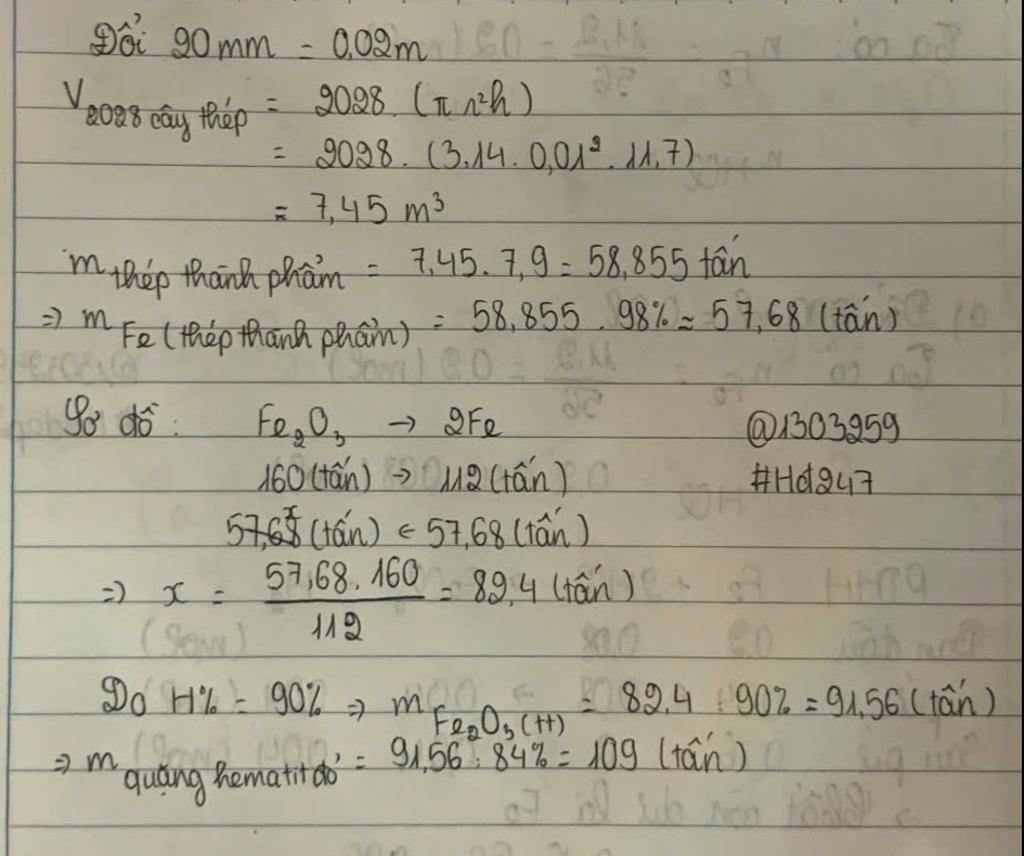 Đổi 20mm = 0,02m
V2028 cây thép = 2028. (π r²h)
= 2028. (3,14. 0,01². 11,7)
= 7,45 m³
m thép thành phẩm = 7,45. 7,9 = 58,855 tấn
=> m Fe (thép thành phẩm) = 58,855 . 98% ≈ 57,68 (tấn)
Sơ đồ: Fe₂O₃ → 2Fe @1303259
160 (tấn) → 112 (tấn) #Hd247
x (tấn) ← 57,68 (tấn)
=> x = 57,68. 160 / 112 = 82,4 (tấn)
Do H% = 90% => m Fe₂O₃ (tt) = 82,4 : 90% = 91,56 (tấn)
=> m quặng hematit đỏ = 91,56 : 84% = 109 (tấn)